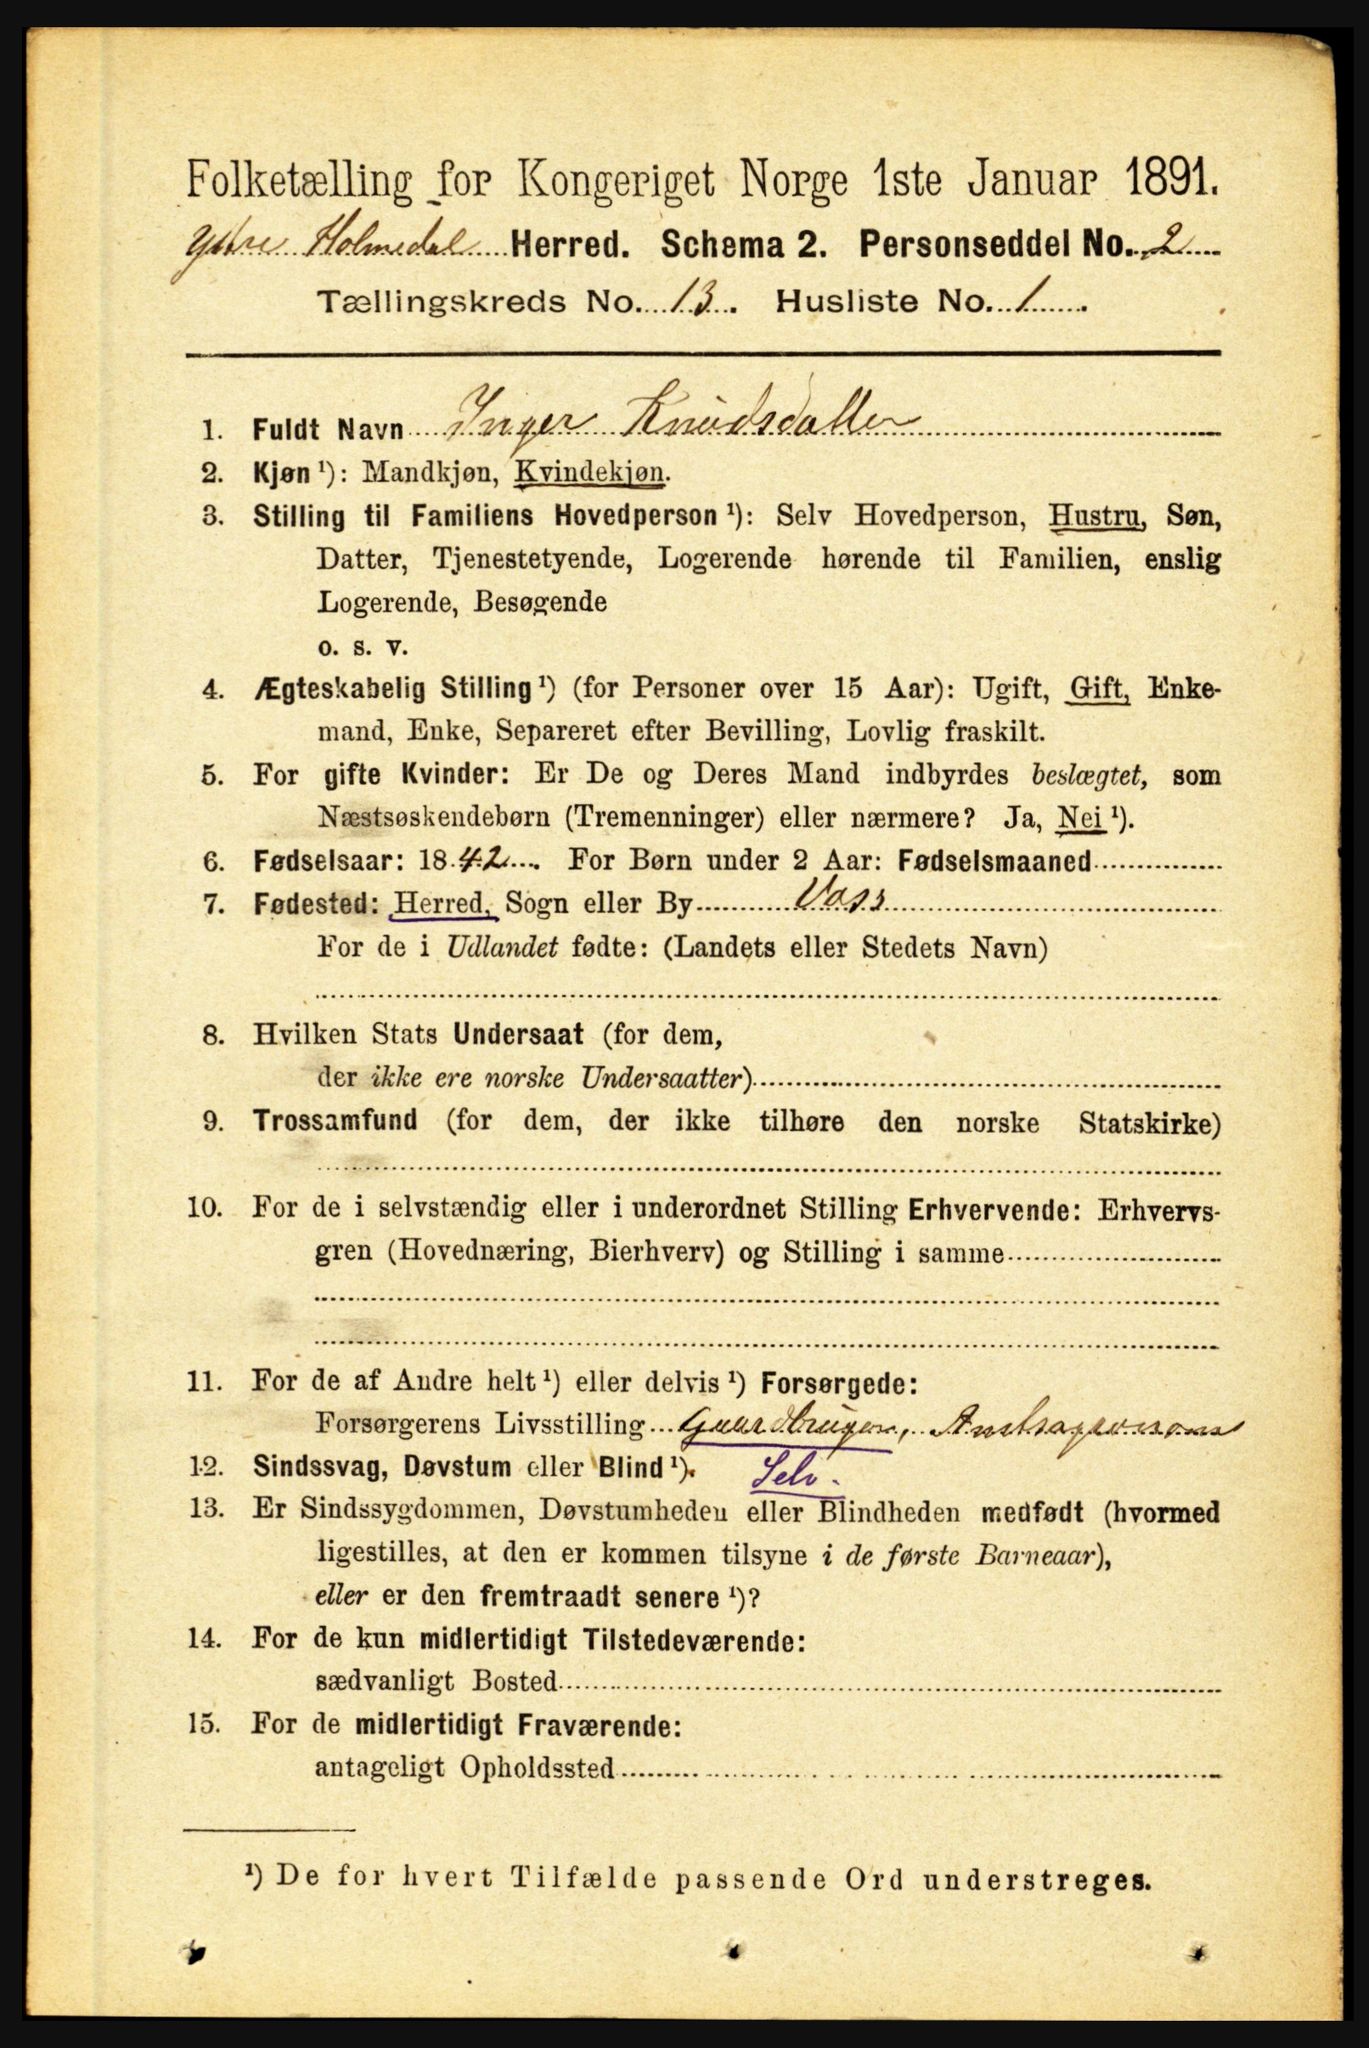 Folketælling for Kongeriget Norge 1ste Januar 1891.
Ytre Holmedal Herred. Schema 2. Personseddel No. 2
Tællingskreds No. 13. Husliste No. 1
1. Fuldt Navn Inger Knudsdatter
2. Kjøn ¹): Mandkjøn, Kvindekjøn.
3. Stilling til Familiens Hovedperson ¹): Selv Hovedperson, Hustru, Søn,
Datter, Tjenestetyende, Logerende hørende til Familien, enslig
Logerende, Besøgende
o. s. v.
4. Ægteskabelig Stilling ¹) (for Personer over 15 Aar): Ugift, Gift, Enke-
mand, Enke, Separeret efter Bevilling, Lovlig fraskilt.
5. For gifte Kvinder: Er De og Deres Mand indbyrdes beslægtet, som
Næstsøskendebørn (Tremenninger) eller nærmere? Ja, Nei ¹).
6. Fødselsaar: 1842. For Børn under 2 Aar: Fødselsmaaned
7. Fødested: Herred, Sogn eller By Voss
For de i Udlandet fødte: (Landets eller Stedets Navn)
8. Hvilken Stats Undersaat (for dem,
der ikke ere norske Undersaatter)
9. Trossamfund (for dem, der ikke tilhøre den norske Statskirke)
10. For de i selvstændig eller i underordnet Stilling Erhvervende: Erhvervs-
gren (Hovednæring, Bierhverv) og Stilling i samme
11. For de af Andre helt ¹) eller delvis ¹) Forsørgede:
Forsørgerens Livsstilling Gaardbruger,
12. Sindssvag, Døvstum eller Blind ¹). Selv.
13. Er Sindssygdommen, Døvstumheden eller Blindheden medfødt (hvormed
ligestilles, at den er kommen tilsyne i de første Barneaar),
eller er den fremtraadt senere ¹)?
14. For de kun midlertidigt Tilstedeværende:
sædvanligt Bosted
15. For de midlertidigt Fraværende:
antageligt Opholdssted
¹) De for hvert Tilfælde passende Ord understreges.